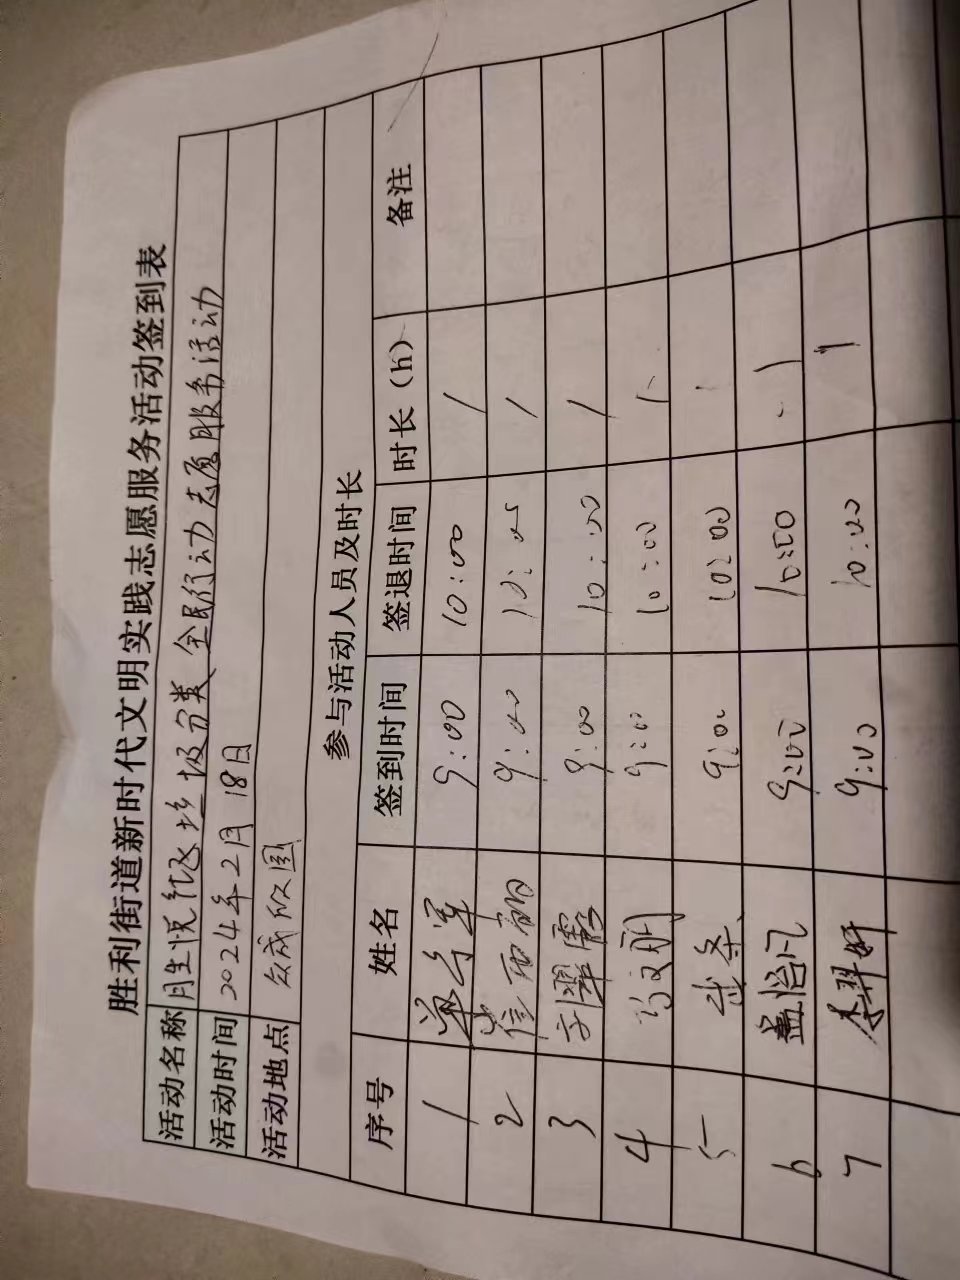 胜利街道新时代文明实践志愿服务活动签到表
活动名称 垃圾分类 全民行动 志愿服务活动
活动时间 2024年2月18日
活动地点 众成欣园
参与活动人员及时长
序号 姓名 签到时间 签退时间 时长（h） 备注
1 9:00 10:00 1
2 9:00 1
3 9:00 10:00 1
4 9:00 10:00 1
5 9:00 10:00 1
6 盖怡凡 9:00 10:00 1
7 9:00 10:00 1